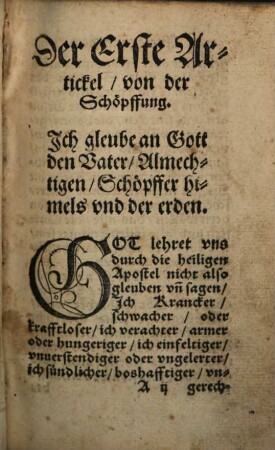 Der Erste Ar-
tickel / von der
Schöpffung.
Ich gleube an Gott
den Vater / Almech-
tigen / Schöpffer hi-
mels vnd der erden.
GOT lehret vns
durch die heiligen
Apostel nicht also
gleuben vñ sagen /
Ich Krancker /
schwacher / oder
krafftloser / ich verachter / armer
oder hungeriger / ich einfeltiger /
vnuerstendiger oder vngelerter /
ich sündlicher / boshafftiger / vn-
A ij gerech-